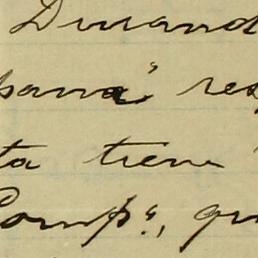 Durand
pana" res
ta tiene
Comp.ª, qu